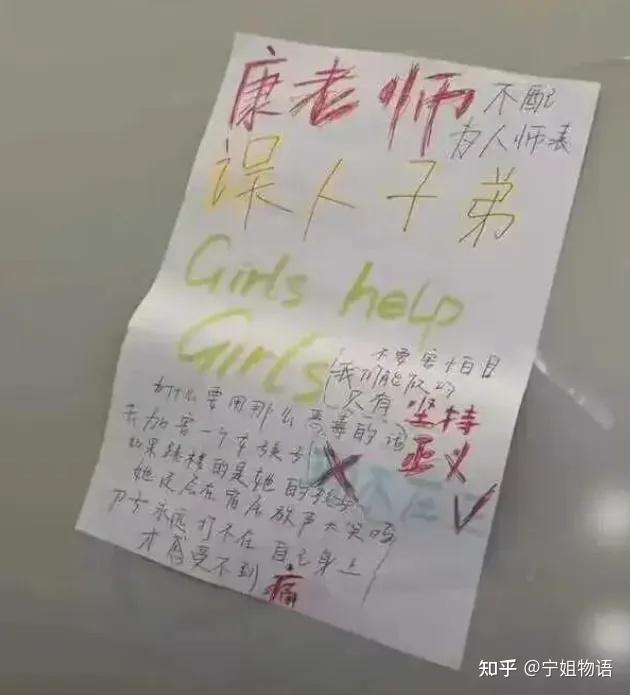 康老师 不配
为人师表
误人子弟
Girls help
Girls
不要害怕
我们能做的
只有 坚持
正义
为什么要用那么恶毒的话
去加害一个女孩子
如果跳楼的是她的孩子
她还会在宿舍放声大笑吗
永远打不在自己身上
才感受不到痛
知乎 @宁姐物语